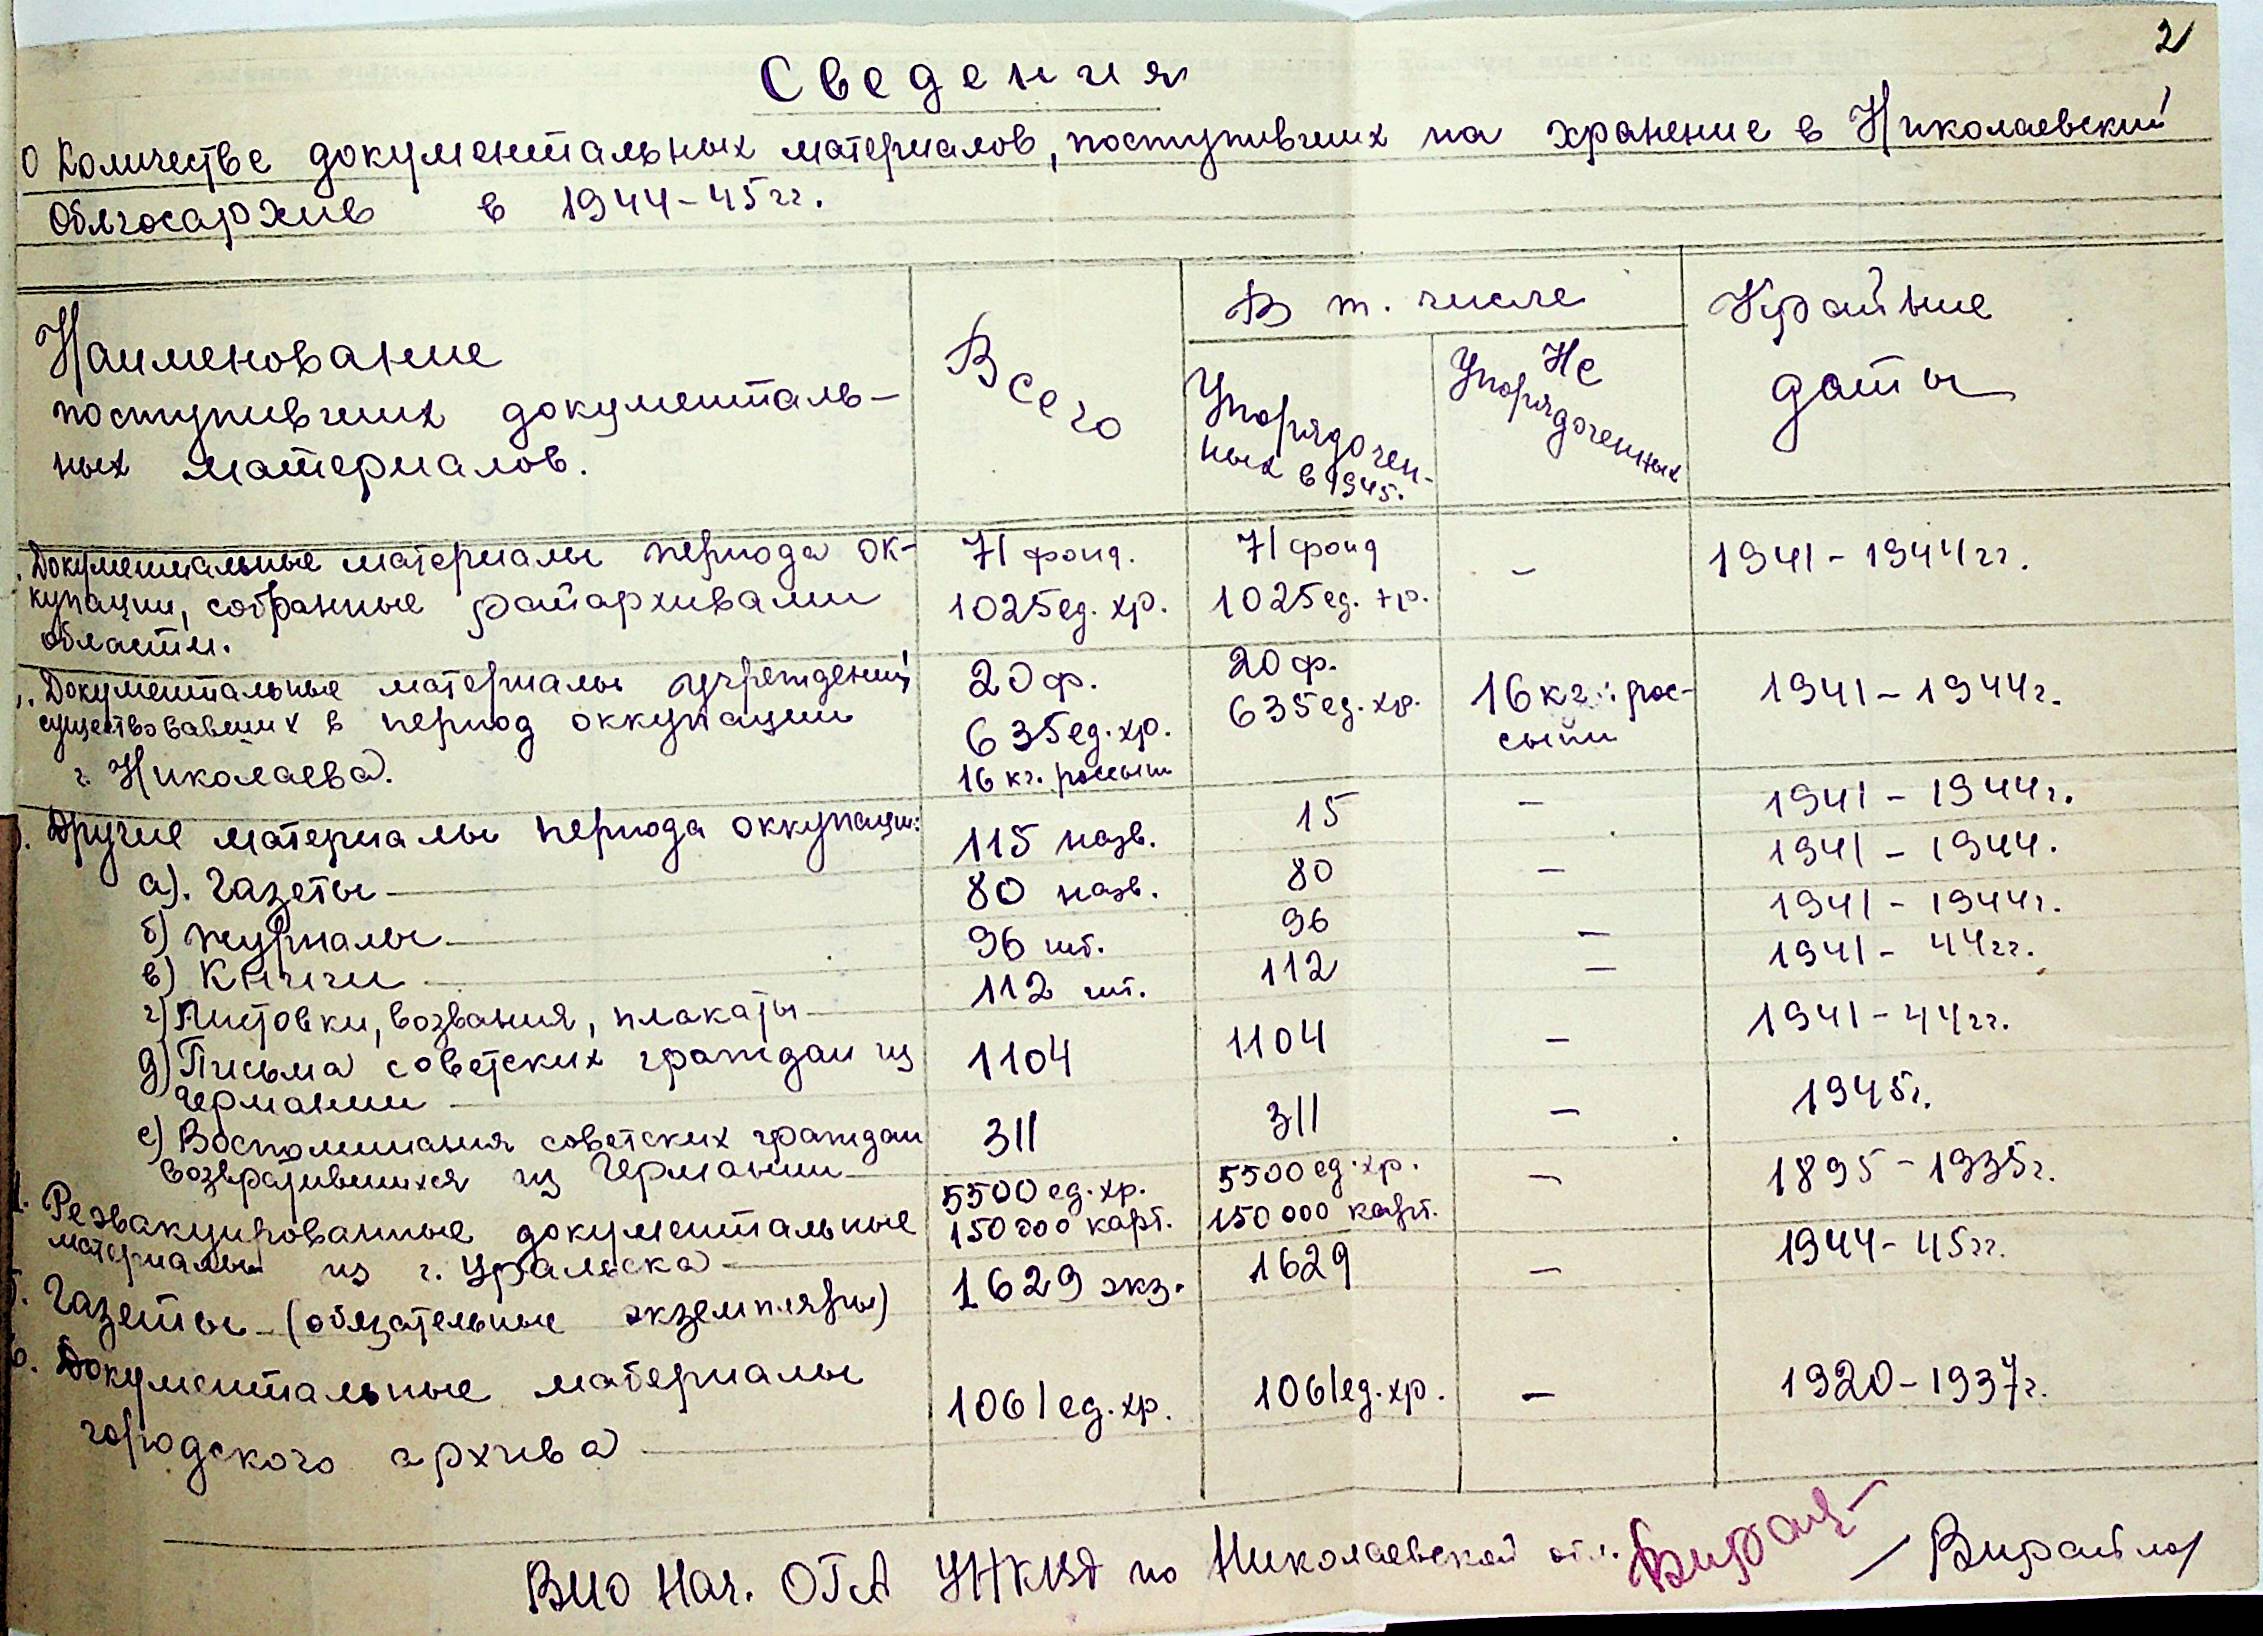 2
Сведения
О количестве документальных материалов, поступивших на хранение в Николаевский
Облгосархив в 1944-45 гг.
Наименование
поступивших документаль-
ных материалов.
Всего
В т. числе
Упорядочен-
ных в 1945.
Не
Упорядоченных
Крайние
даты
Документальные материалы периода ок-
купации, собранные райархивами
области.
71 фонд.
1025 ед. хр.
71 фонд
1025 ед. хр.
-
1941 - 1944 гг.
Документальные материалы учреждений
существовавших в период оккупации
г. Николаева.
20 ф.
635 ед. хр.
16 кг. россыпи
20 ф.
635 ед. хр.
16 кг. рос-
сыпи
1941 - 1944 г.
Другие материалы периода оккупации:
а). Газеты
115 назв.
15
-
1941 - 1944 г.
б) журналы
80 назв.
80
-
1941 - 1944.
в) Книги
96 шт.
96
-
1941 - 1944 г.
г) Листовки, возвания, плакаты
112 шт.
112
-
1941 - 44 гг.
д) Письма советских граждан из
Германии
1104
1104
-
1941 - 44 гг.
е) Воспоминания советских граждан
возвратившихся из Германии
311
311
-
1945 г.
Реэвакуированные документальные
материалы из г. Уральска
5500 ед. хр.
150000 карт.
5500 ед. хр.
150000 карт.
-
1895 - 1935 г.
5. Газеты (обязательные экземпляры)
1629 экз.
1629
-
1944 - 45 гг.
6. Документальные материалы
городского архива
1061 ед. хр.
1061 ед. хр.
-
1920 - 1937 г.
ВИО Нач. ОГА УНКВД по Николаевской обл.